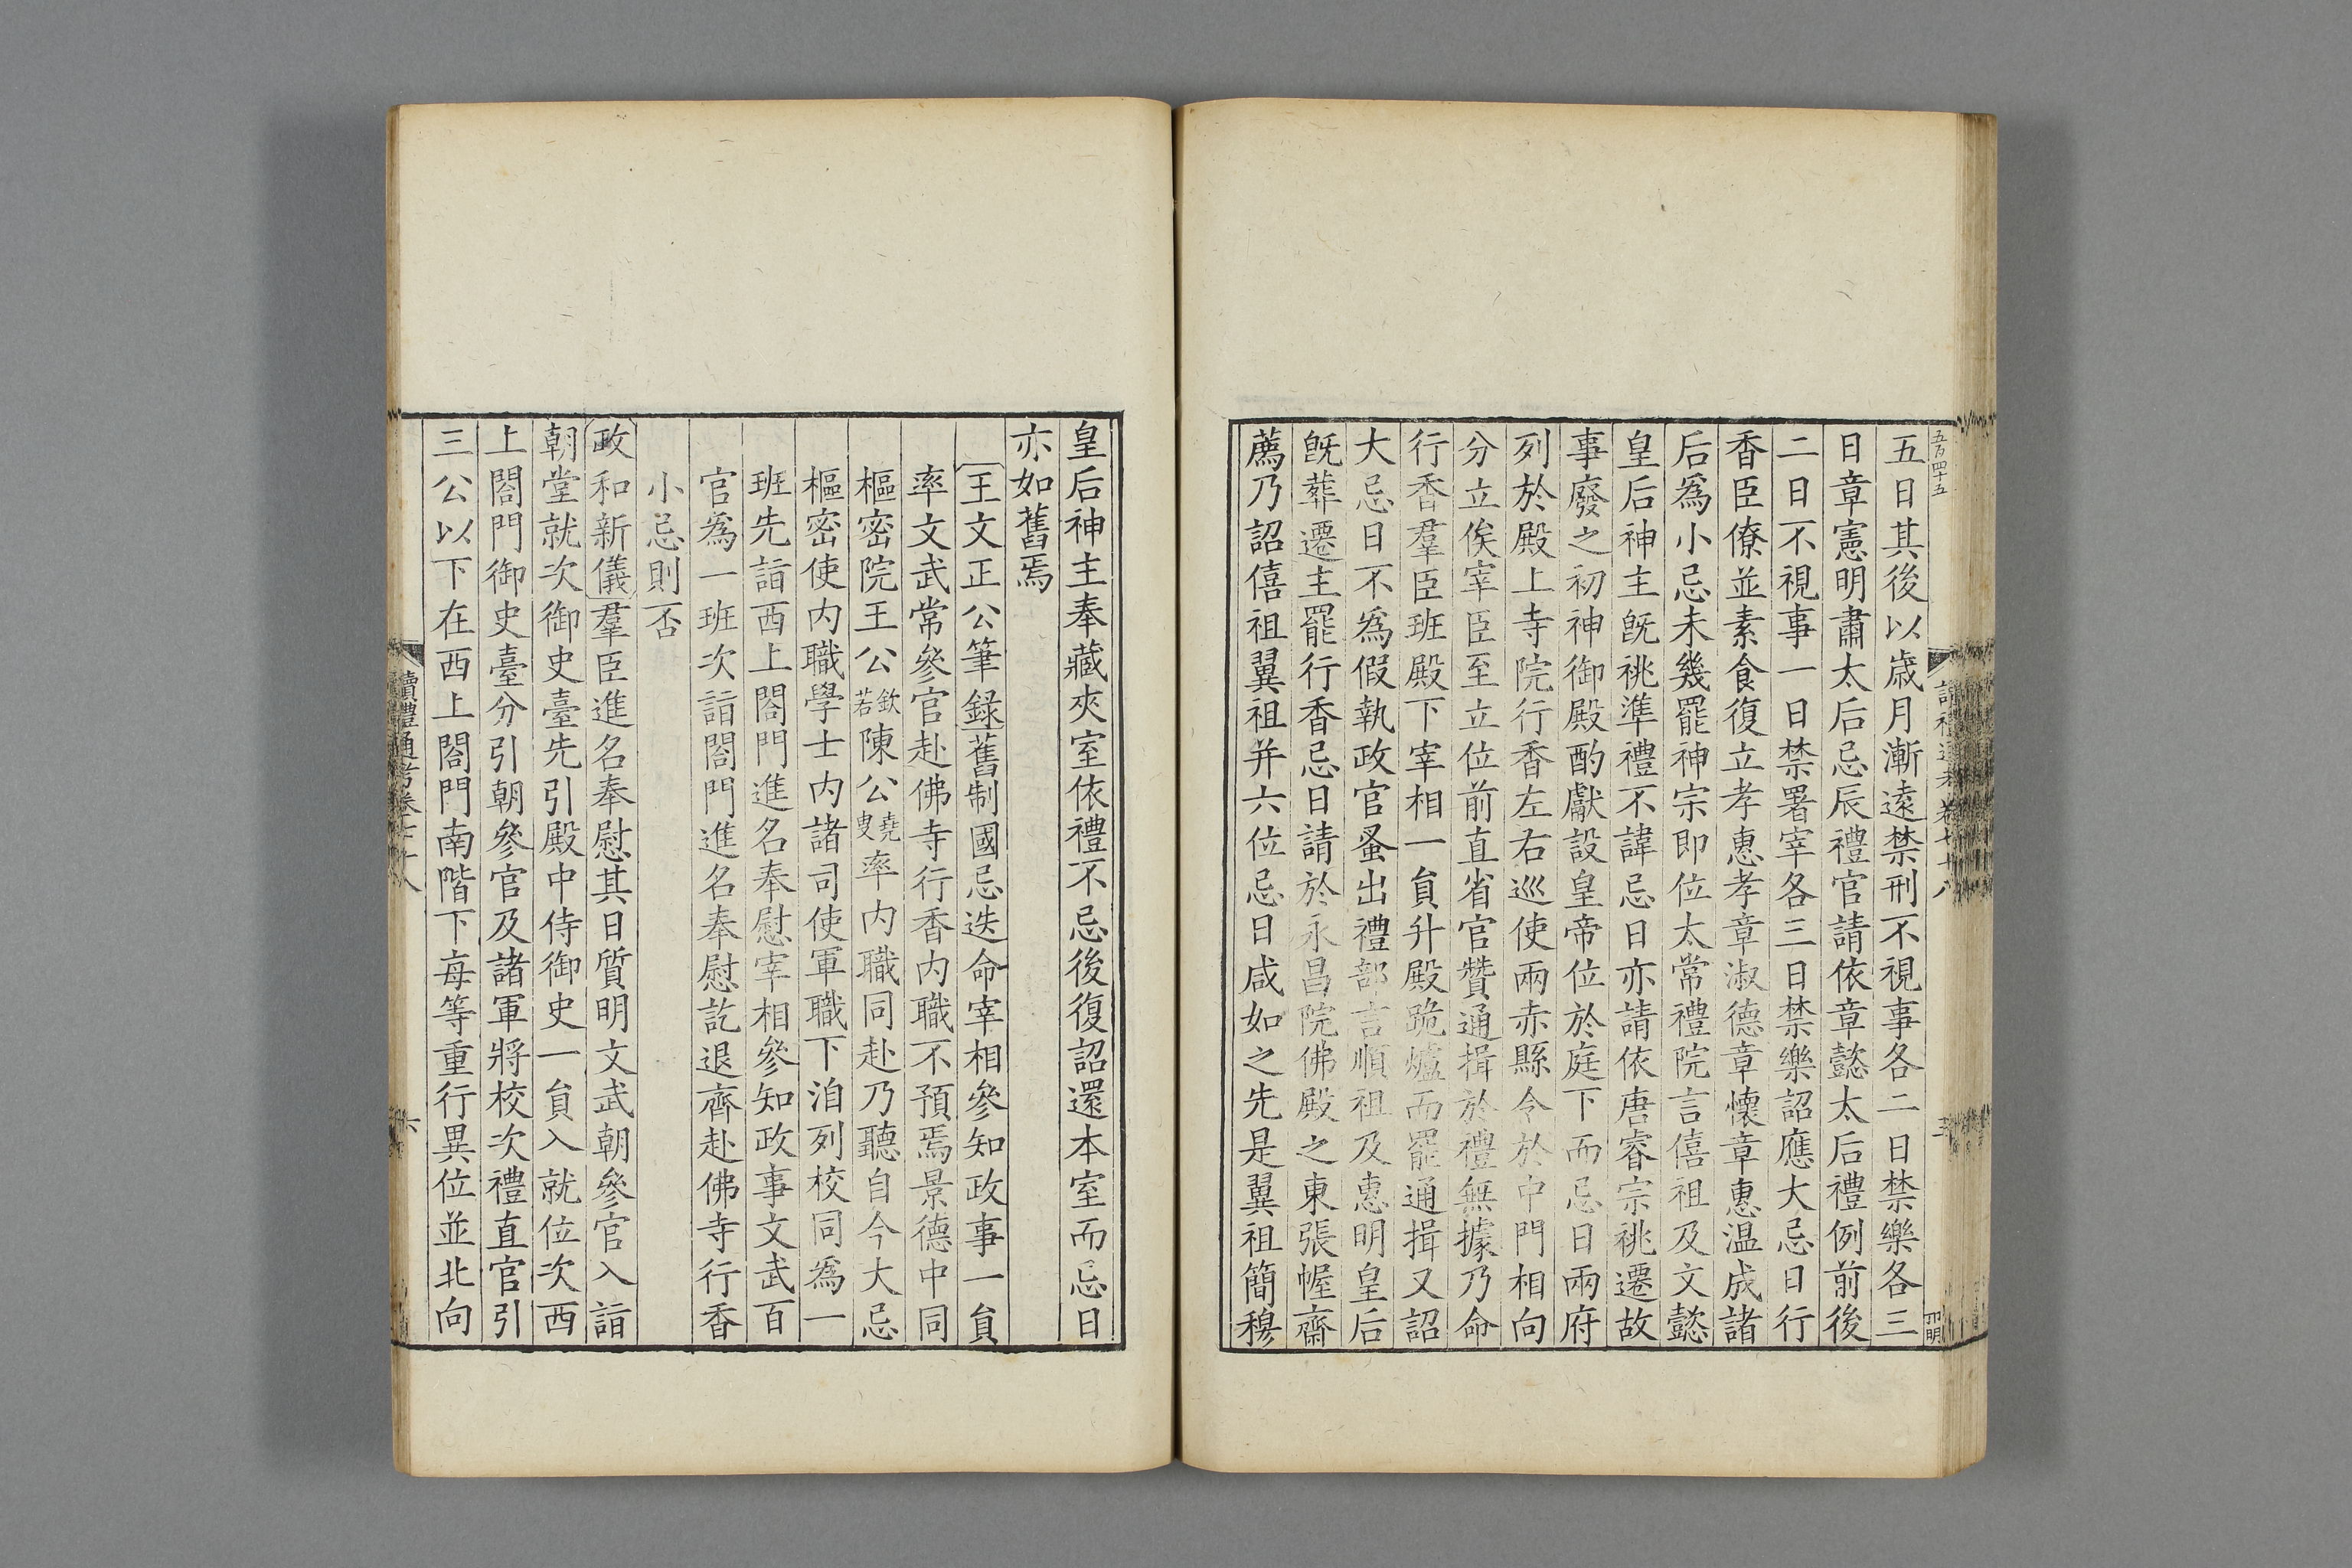 五百四十五
五日其後以歳月漸遠禁刑不視事各二日禁樂各三
日章憲明肅太后忌辰禮官請依章懿太后禮例前後
二日不視事一日禁署宰各三日禁樂詔應大忌日行
香臣僚並素食復立孝惠孝章淑德章懷章惠温成諸
后爲小忌未幾罷神宗即位太常禮院言僖祖及文懿
皇后神主旣祧準禮不諱忌日亦請依唐睿宗祧遷故
事廢之初神御殿酌獻設皇帝位於庭下而忌日兩府
列於殿上寺院行香左右巡使兩赤縣令於中門相向
分立俟宰臣至立位前直省官贊通揖於禮無據乃命
行香羣臣班殿下宰相一貟升殿跪爐而罷通揖又詔
大忌日不爲假執政官蚤出禮部言順祖及惠明皇后
旣葬遷主罷行香忌日請於永昌院佛殿之東張幄齋
薦乃詔僖祖翼祖并六位忌日咸如之先是翼祖簡穆
皇后神主奉藏夾室依禮不忌後復詔還本室而忌日
亦如舊焉
王文正公筆錄舊制國忌迭命宰相參知政事一貟
率文武常參官赴佛寺行香内職不預焉景德中同
樞密院王公欽若陳公堯叟率内職同赴乃聽自今大忌
樞密使内職學士内諸司使軍職下洎列校同爲一
班先詣西上閤門進名奉慰宰相參知政事文武百
官爲一班次詣閤門進名奉慰訖退齊赴佛寺行香
小忌則否
政和新儀羣臣進名奉慰其日質明文武朝參官入詣
朝堂就次御史臺先引殿中侍御史一貟入就位次西
上閤門御史臺分引朝參官及諸軍將校次禮直官引
三公以下在西上閤門南階下每等重行異位並北向
讀禮通考卷七十八
六